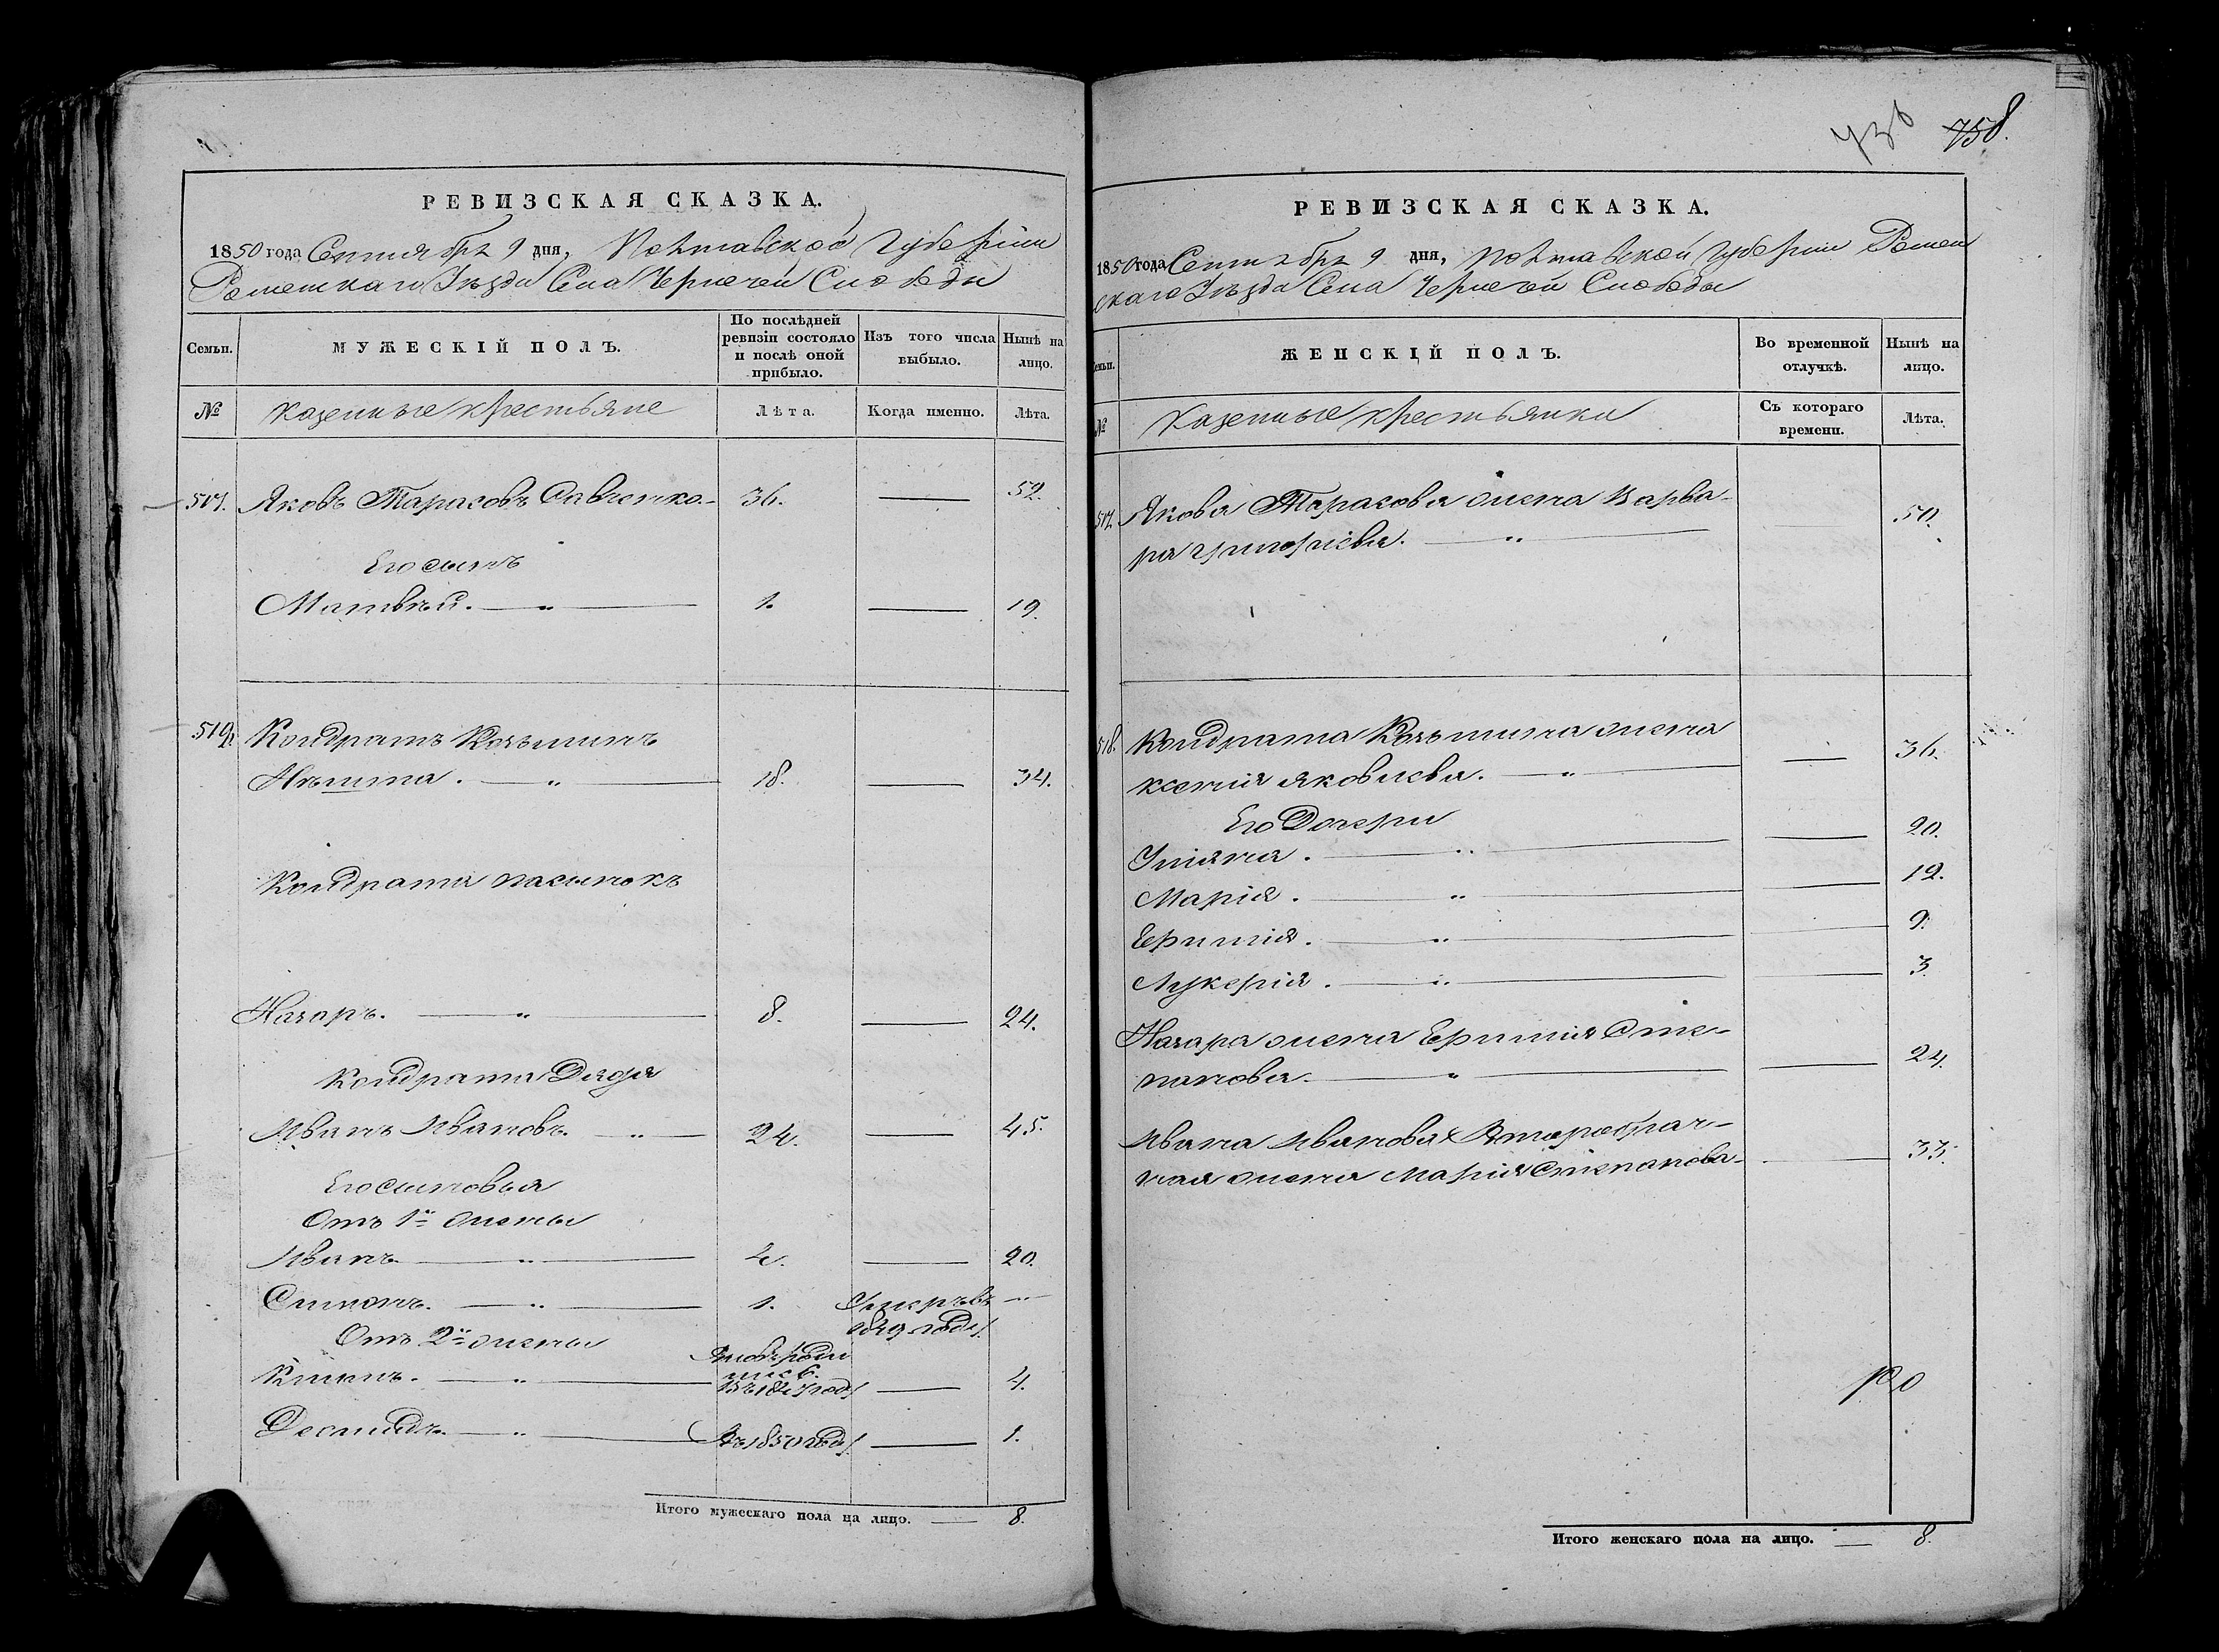 РЕВИЗСКАЯ СКАЗКА.
1850 года Сентября 9 дня, Полтавской Губерніи
Роменскаго Уѣзда Села Чернечей Слободы
Семьи.
МУЖЕСКІЙ ПОЛЪ.
По послѣдней ревизіи состояло и послѣ оной прибыло.
Изъ того числа выбыло.
Нынѣ на лицо.
№
Казенные крестьяне
Лѣта.
Когда именно.
Лѣта.
517. Яковъ Тарасовъ Савченко 36. — 52.
Его сынъ
Матвѣй. — „ — 1. — 19.
518. Кондратъ Козьминъ
18. — 34.
Кондрата пасынокъ
Назаръ. — „ — 8. — 24.
Кондрата Дядя
Иванъ Ивановъ. — „ — 24. — 45.
Его сыновья
Отъ 1й жены
Иванъ — „ — 4. — 20.
Симонъ. — „ — 1. Умеръ въ — „ —
1849 году
Отъ 2й жены
— „ — — 4.
Демидъ. — „ — Въ 1850 году — 1.
Итого мужескаго пола на лицо. — 8.
738 758.
РЕВИЗСКАЯ СКАЗКА.
1850 года Сентября 9 дня, Полтавской Губерніи Ромен
скаго Уѣзда Села Чернечей Слободы
Семьи.
ЖЕНСКІЙ ПОЛЪ.
Во временной отлучкѣ.
Нынѣ на лицо.
№
Казенные крестьянки
Съ котораго времени.
Лѣта.
517. Якова Тарасова жена Варва-
ра Григорьева. — „ — 50.
518. Кондрата Козьмина жена
Ксенія Яковлева. — „ — — 36.
Его Дочери
Уліяна. — „ — — 20.
Марія. — „ — — 12.
— „ — — 9.
Лукерія. — „ — — 3.
Назара жена Сте-
панова. — „ — — 24.
Ивана Иванова Второбрач-
ная жена Марія Степанова — 33.
Итого женскаго пола на лицо. — 8.